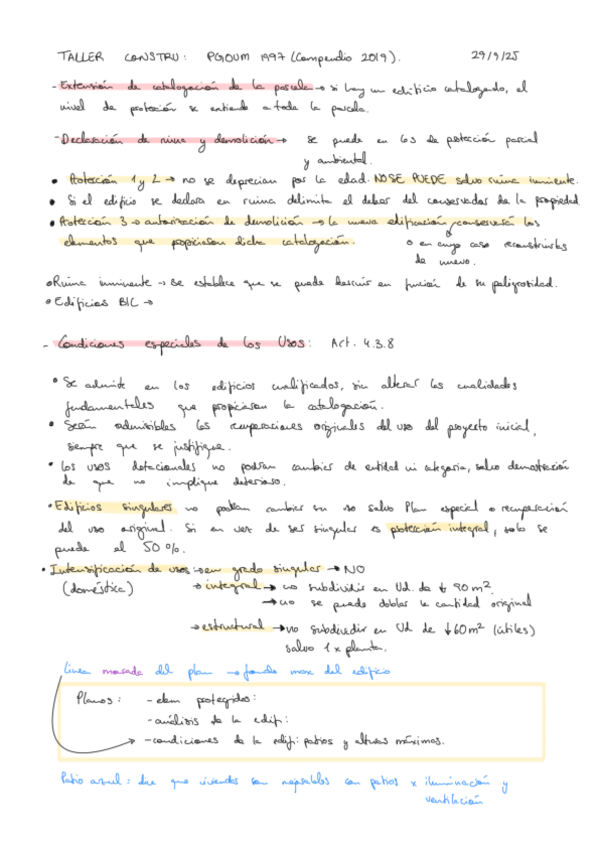 TALLER CONSTRU: PGOUM 1997 (Compendio 2019). 29/9/25
- Extensión de catalogación de la parcela → si hay un edificio catalogado, el
nivel de protección se entiende a toda la parcela.
- Declaración de ruina y demolición → se puede en los de protección parcial
y ambiental.
• Protección 1 y 2 → no se deprecian por la edad. NO SE PUEDE salvo ruina inminente.
• Si el edificio se declara en ruina delimita el deber del conservador de la propiedad
• Protección 3 → autorización de demolición → la nueva edificación conservará los
elementos que propiciaron dicha catalogación. o en cuyo caso reconstruirlos
de nuevo.
• Ruina inminente → se establece que se puede destruir en función de su peligrosidad.
• Edificios BIC →
- Condiciones especiales de los Usos: Art. 4.3.8
• Se admite en los edificios cualificados, sin alterar las cualidades
fundamentales que propiciaron la catalogación.
• Serán admisibles las recuperaciones originales del uso del proyecto inicial,
siempre que se justifique.
• Los usos dotacionales no podrán cambiar de entidad ni categoría, salvo demostración
de que no implique deterioro.
• Edificios singulares no podían cambiar su uso salvo Plan especial o recuperación
del uso original. Si en vez de ser singular es protección integral, solo se
puede el 50%.
• Intensificación de usos → en grado singular → NO
(doméstica) → integral → no subdividir en Ud. de ↓ 90 m²
→ no se puede doblar la cantidad original
→ estructural → no subdividir en Ud de ↓ 60 m² (útiles)
salvo 1 x planta.
línea morada del plan → fondo max del edificio
Planos: - elem protegidos:
- análisis de la edif:
- condiciones de la edif: patios y alturas máximos.
Patio azul: dice que viviendas son mejorables con patios x iluminación y
ventilación